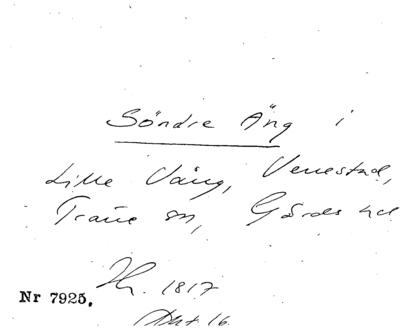 Söndre Äng i
Lille Vång, Venestad,
Träne sn, Gärds hd
1817
Nr 7925.
Akt 16